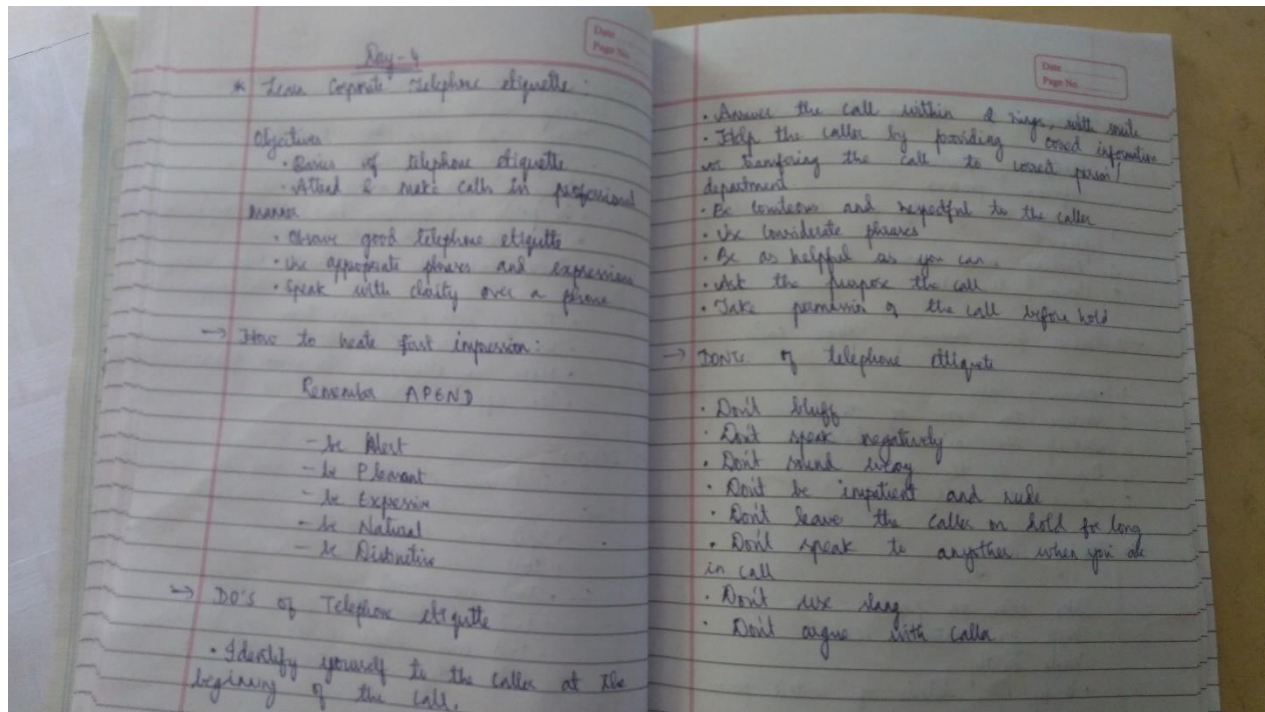 Date
Page No.
Day-4
* Learn Corporate Telephone etiquette :
Objectives
• Basics of telephone etiquette
• Attend & make calls in professional
manner
• Observe good telephone etiquette
• Use appropriate phrases and expressions
• Speak with clarity over a phone
→ How to create first impression :
Remember APEND
- be Alert
- be Pleasant
- be Expressive
- be Natural
- be Distinctive
→ DO'S of Telephone etiquette
• Identify yourself to the caller at the
beginning of the call.
Date
Page No.
• Answer the call within 2 rings, with smile
• Help the caller by providing correct information
or transfering the call to correct person/
department
• Be courteous and respectful to the caller
• Use considerate phrases
• Be as helpful as you can
• Ask the purpose the call
• Take permission of the call before hold
→ DONTs of telephone etiquete
• Don't bluff
• Don't speak negatively
• Don't sound
• Don't be impatient and rude
• Don't leave the caller on hold for long
• Don't speak to anyother when you are
in call
• Don't use slang
• Don't argue with caller